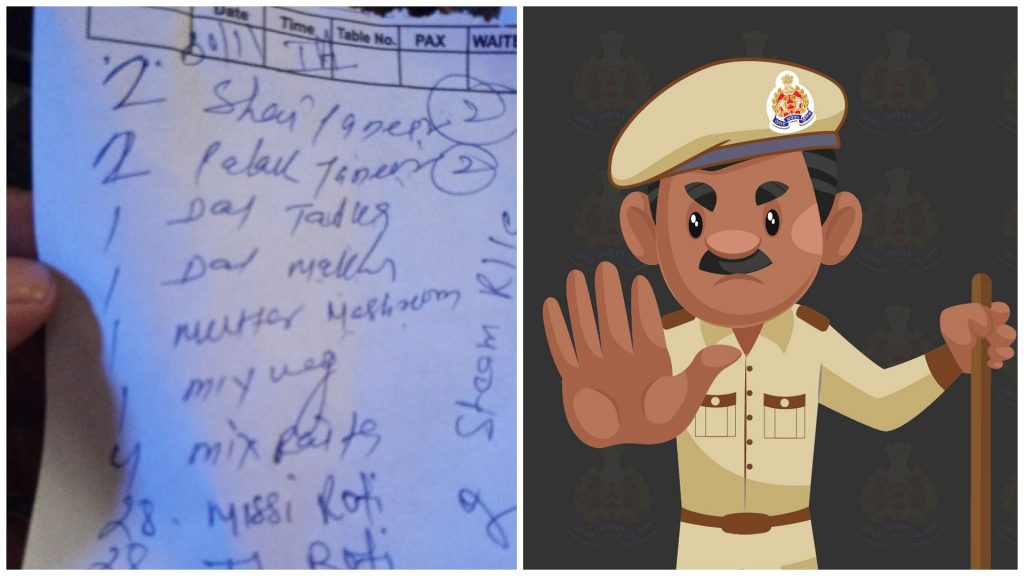 Date Time Table No. PAX WAITE
2 Shai Paneer 2
2 Palak Paneer 2
1 Dal Tadka
1 Dal Makhni
1 Mutter Mashroom
1 Mix veg
4 Mix Raita
28. Missi Roti
28 Roti
Steam Rice